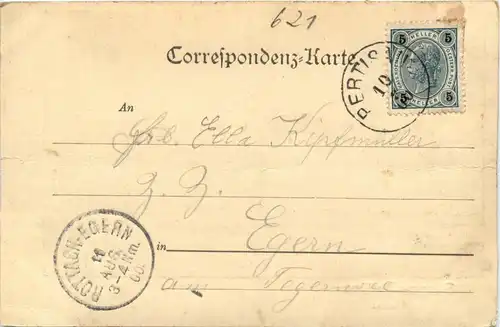 621
Correspondenz-Karte
5 HELLER 5
5 HELLER 5
PERTISAU
10
An
Frl. Ella Kipfmüller
z. Z.
in Egern
am Tegernsee
ROTTACH-EGERN
11
AUG.
3-4 Nm.
00.